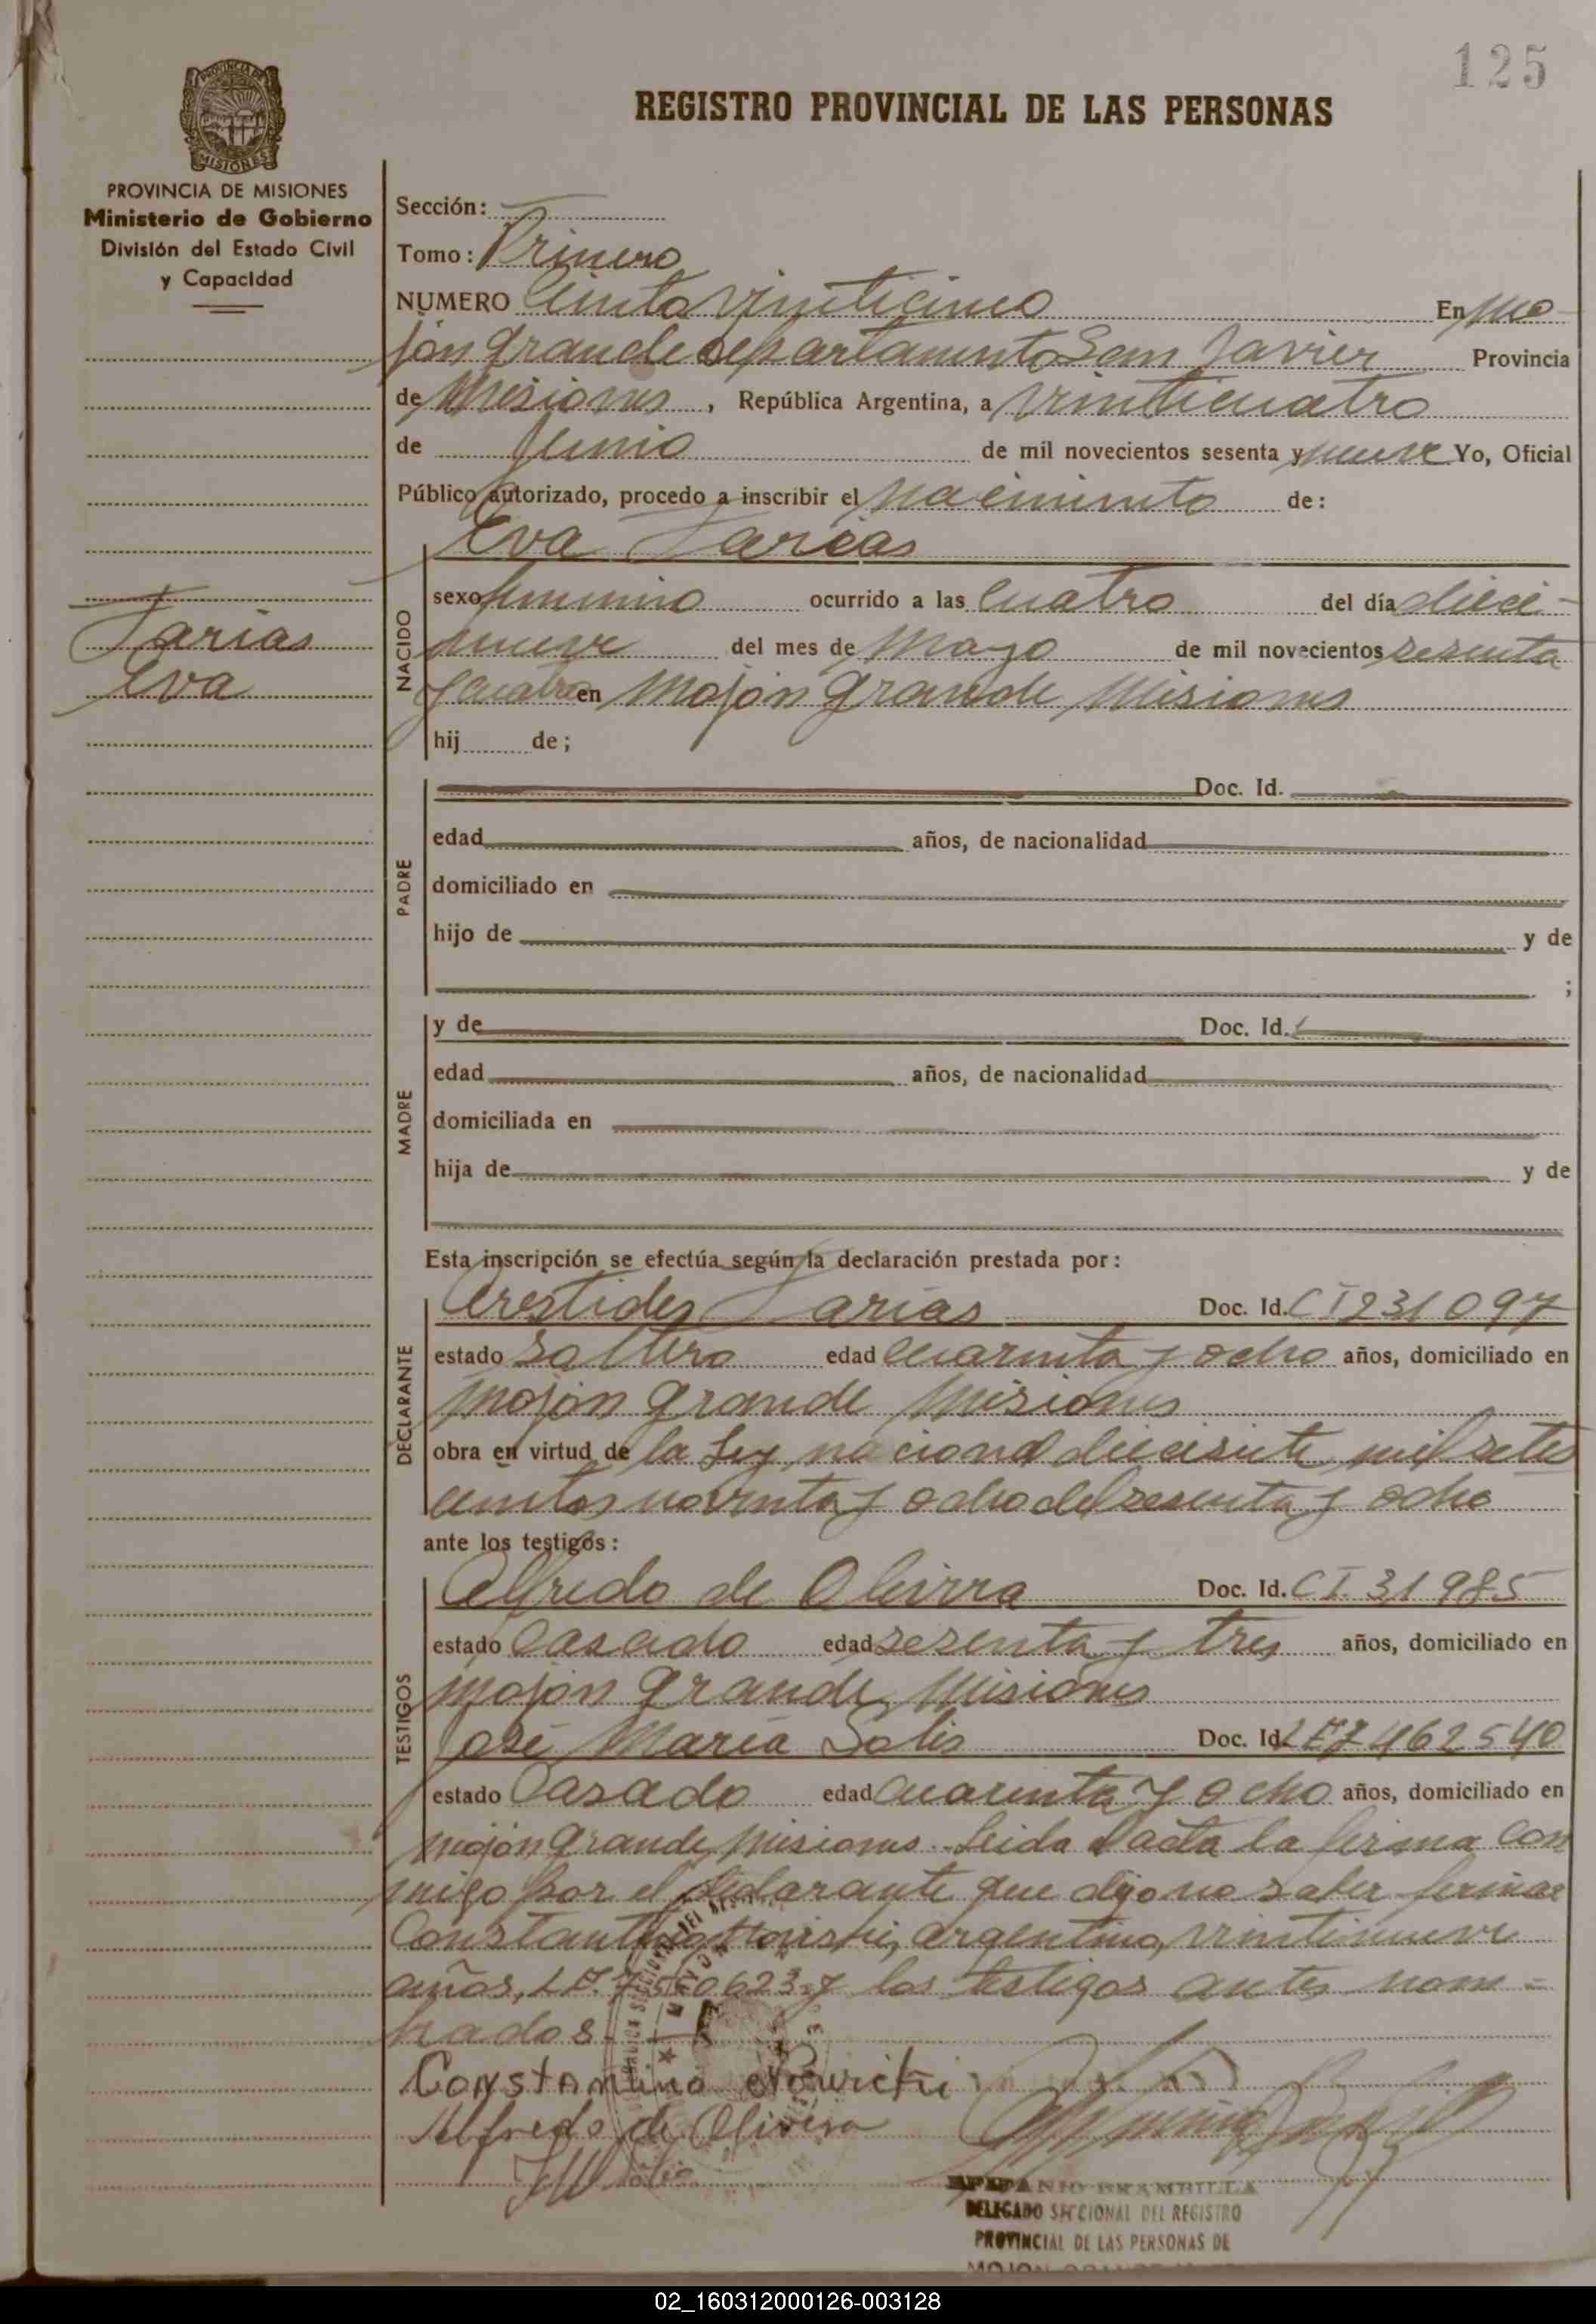 125
REGISTRO PROVINCIAL DE LAS PERSONAS
PROVINCIA DE MISIONES
Ministerio de Gobierno
División del Estado Civil
y Capacidad
Sección:
Tomo: Primero
NUMERO Ciento veinticinco En Mo-
jón Grande Departamento San Javier Provincia
de Misiones, República Argentina, a veinticuatro
de Junio de mil novecientos sesenta y nueve Yo, Oficial
Público autorizado, procedo a inscribir el nacimiento de:
Eva Farias
Farias
Eva
NACIDO
sexo femenino ocurrido a las cuatro del día dieci-
nueve del mes de Mayo de mil novecientos sesenta
y cuatro en Mojón Grande, Misiones
hij de;
PADRE
Doc. Id.
edad años, de nacionalidad
domiciliado en
hijo de y de
;
MADRE
y de Doc. Id.
edad años, de nacionalidad
domiciliada en
hija de y de
Esta inscripción se efectúa según la declaración prestada por:
DECLARANTE
Arestides Farias Doc. Id. CI 231097
estado Soltero edad cuarenta y ocho años, domiciliado en
Mojón Grande Misiones
obra en virtud de la Ley nacional diecisiete mil sete
cientos noventa y ocho del sesenta y ocho
ante los testigos:
TESTIGOS
Alfredo de Oliveira Doc. Id. C I. 31985
estado Casado edad sesenta y tres años, domiciliado en
Mojón Grande, Misiones
José María Solis Doc. Id. LE 7462540
estado Casado edad cuarenta y ocho años, domiciliado en
Mojón Grande, Misiones. Leida el acta la firma con
migo por el declarante que dijo no saber firmar
Constantino argentino, veintinueve
años, LE. 7560623 y los testigos antes nom-
brados.
Constantino
Alfredo de Olivera
JM Solis
BRAMBILLA
DELEGADO SECCIONAL DEL REGISTRO
PROVINCIAL DE LAS PERSONAS DE
MOJON GRANDE
02_160312000126-003128